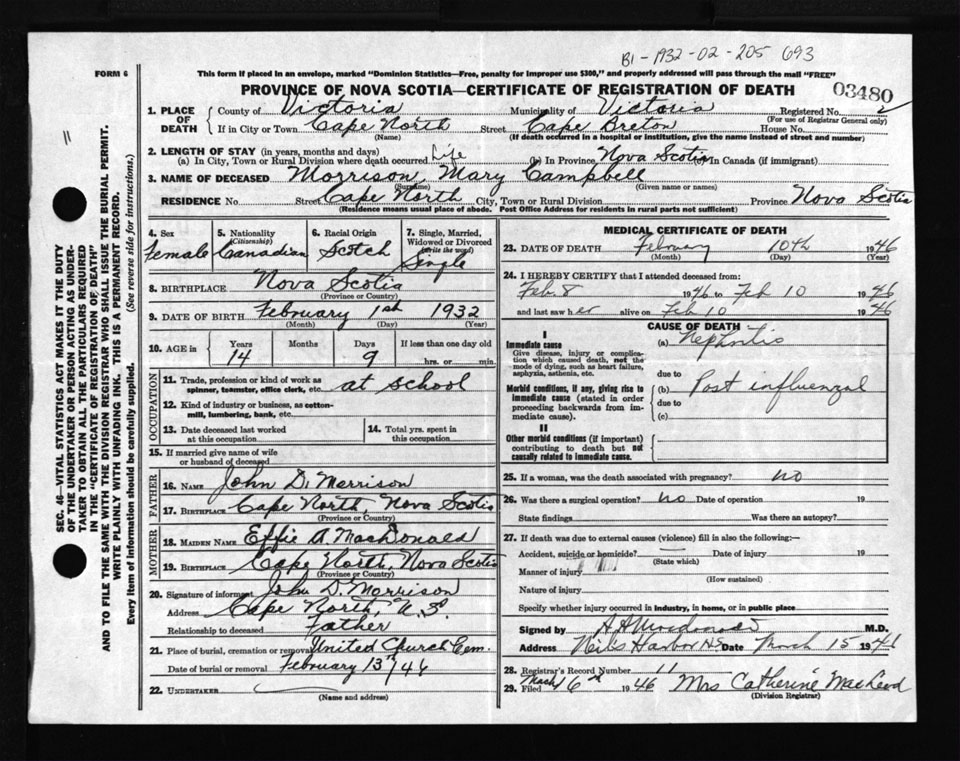 B1-1932-02-205 693
FORM 6
This form if placed in an envelope, marked "Dominion Statistics—Free, penalty for improper use $300," and properly addressed will pass through the mail "FREE"
PROVINCE OF NOVA SCOTIA—CERTIFICATE OF REGISTRATION OF DEATH
03480
1. PLACE OF DEATH County of Victoria Municipality of Victoria Registered No.
(For use of Registrar General only)
If in City or Town Cape North Street Cape Breton House No.
(Name) (If death occurred in a hospital or institution, give the name instead of street and number)
2. LENGTH OF STAY (in years, months and days)
(a) In City, Town or Rural Division where death occurred Life (b) In Province Nova Scotia In Canada (if immigrant)
3. NAME OF DECEASED Morrison, Mary Campbell
(Surname) (Given name or names)
RESIDENCE No. Street Cape North City, Town or Rural Division Province Nova Scotia
(Residence means usual place of abode. Post Office Address for residents in rural parts not sufficient)
4. Sex Female
5. Nationality (Citizenship) Canadian
6. Racial Origin Scotch
7. Single, Married, Widowed or Divorced (Write the word) Single
8. BIRTHPLACE Nova Scotia
(Province or Country)
9. DATE OF BIRTH February 1st 1932
(Month) (Day) (Year)
10. AGE in Years 14 Months Days 9 If less than one day old hrs. or min.
OCCUPATION
11. Trade, profession or kind of work as spinner, teamster, office clerk, etc. at school
12. Kind of industry or business, as cotton-mill, lumbering, bank, etc.
13. Date deceased last worked at this occupation
14. Total yrs. spent in this occupation
15. If married give name of wife or husband of deceased
FATHER
16. NAME John D. Morrison
17. BIRTHPLACE Cape North, Nova Scotia
(Province or Country)
MOTHER
18. MAIDEN NAME Effie A. MacDonald
19. BIRTHPLACE Cape North, Nova Scotia
(Province or Country)
20. Signature of informant John D. Morrison
Address Cape North, N.S.
Relationship to deceased Father
21. Place of burial, cremation or removal United Church Cem.
Date of burial or removal February 13th/46
22. UNDERTAKER
(Name and address)
MEDICAL CERTIFICATE OF DEATH
23. DATE OF DEATH February 10th 1946
(Month) (Day) (Year)
24. I HEREBY CERTIFY that I attended deceased from:
Feb. 8 1946 to Feb 10 1946
and last saw her alive on Feb 10 1946
CAUSE OF DEATH
I
Immediate cause
Give disease, injury or complication which caused death, not the mode of dying, such as heart failure, asphyxia, asthenia, etc.
(a) Nephritis
due to
Morbid conditions, if any, giving rise to immediate cause (stated in order proceeding backwards from immediate cause).
(b) Post influenzal
due to
(c)
II
Other morbid conditions (if important) contributing to death but not causally related to immediate cause.
25. If a woman, was the death associated with pregnancy? no
26. Was there a surgical operation? no Date of operation 19
State findings Was there an autopsy?
27. If death was due to external causes (violence) fill in also the following:—
Accident, suicide or homicide? Date of injury 19
(State which)
Manner of injury
(How sustained)
Nature of injury
Specify whether injury occurred in industry, in home, or in public place
Signed by M.D.
Address Neils Harbor NS Date March 15 1946
28. Registrar's Record Number 11
29. Filed March 16th 1946 Mrs Catherine MacLeod
(Division Registrar)
11
SEC. 46—VITAL STATISTICS ACT MAKES IT THE DUTY
OF THE UNDERTAKER OR PERSON ACTING AS UNDER-
TAKER TO OBTAIN ALL THE PARTICULARS REQUIRED
IN THE "CERTIFICATE OF REGISTRATION OF DEATH"
AND TO FILE THE SAME WITH THE DIVISION REGISTRAR WHO SHALL ISSUE THE BURIAL PERMIT.
WRITE PLAINLY WITH UNFADING INK. THIS IS A PERMANENT RECORD.
Every item of information should be carefully supplied. (See reverse side for instructions.)